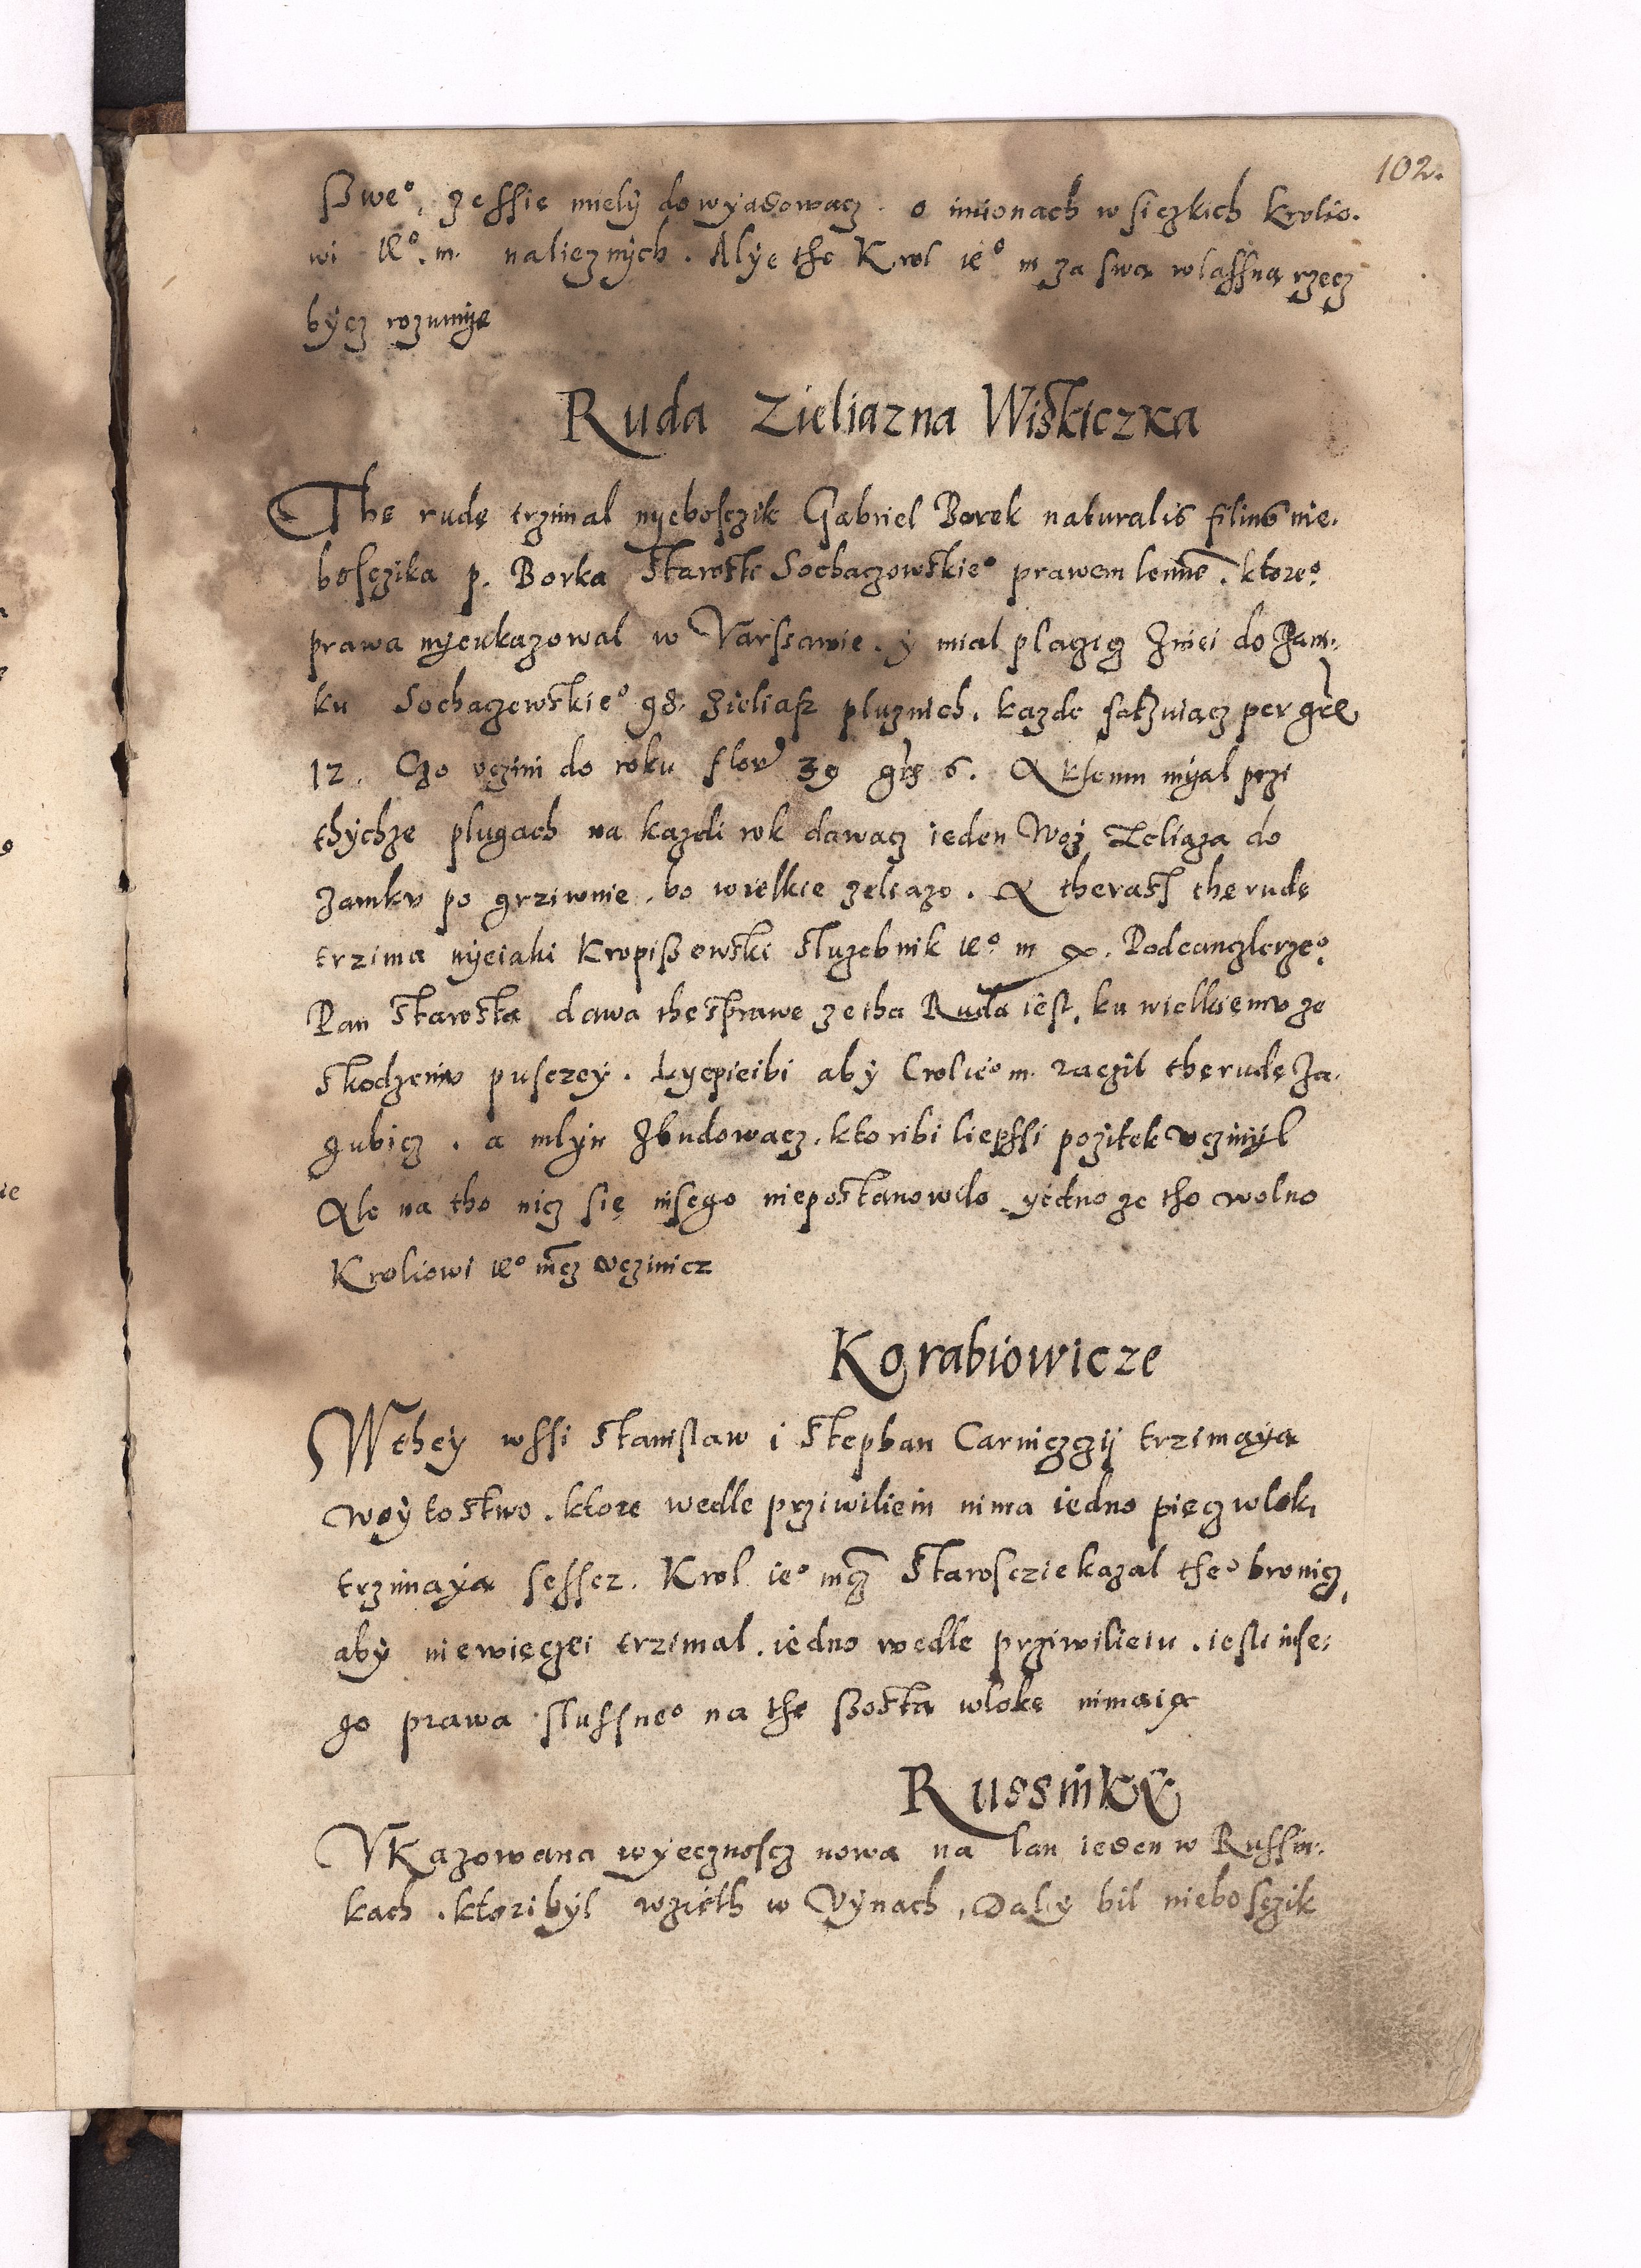 102.
ßwe°, zessie miely dowyadowacz. o imionach wsiezkich Krolio.
wi ie°. m. nalieznych. Alye tho Krol ie° m za swa wlassna rzecz
bycz rozumye
Ruda Zieliazna Wiskiczka
The rude trzimal nyeboszczik Gabriel Borek naturalis filius nie.
bosczika p. Borka Starosti Sochaczowskie° prawem lenne. ktore°
prawa nyeukazowal w Varssawie. y mial placzicz z niei do Zam.
ku Sochaczewskie° 98. Zieliasz pluznich. kazde per
12. Czo uczini do roku flor 39 grs 6. A ktemu myal przi
thychze plugach na kazdi rok dawacz ieden Woz Zeliaza do
Zamku po grziwnie. bo wielkie zeliazo. A therasz the rude
trzima nyeiaki Kropißewski sluzebnik ie° m x. Podcanczlerze°
Pan Starosta dawa the sprawe ze tha Ruda iest, ku wielkiemu ze
skodzeniu pusczey. Lyepieibi aby Crol ie° m. raczil the rude Za.
gubicz. a mlyn Zbudowacz. ktoribi liepssi pozitek uczinyl
Ale na tho nicz sie inszego niepostanowilo yedno ze tho wolno
Kroliowi ie° mcz uczinicz
Korabiowicze
W they wssi Stanislaw i Stephan Carniczczij trzimaya
woytostwo. ktore wedle prziwilieiu nima iedno piecz wlok,
trzimaya sessez. Krol ie° mcz Starosczie kazal the° bronicz,
aby niewieczei trzimal. iedno wedle prziwilieiu. iesli insze.
go prawa slussne° na the ßosta wloke nimaia
Russinky
Vkazowana wyecznoscz nowa na lan ieden w Russin.
kach. ktori byl wzieth w Vynach, Daly bil nieboszczik